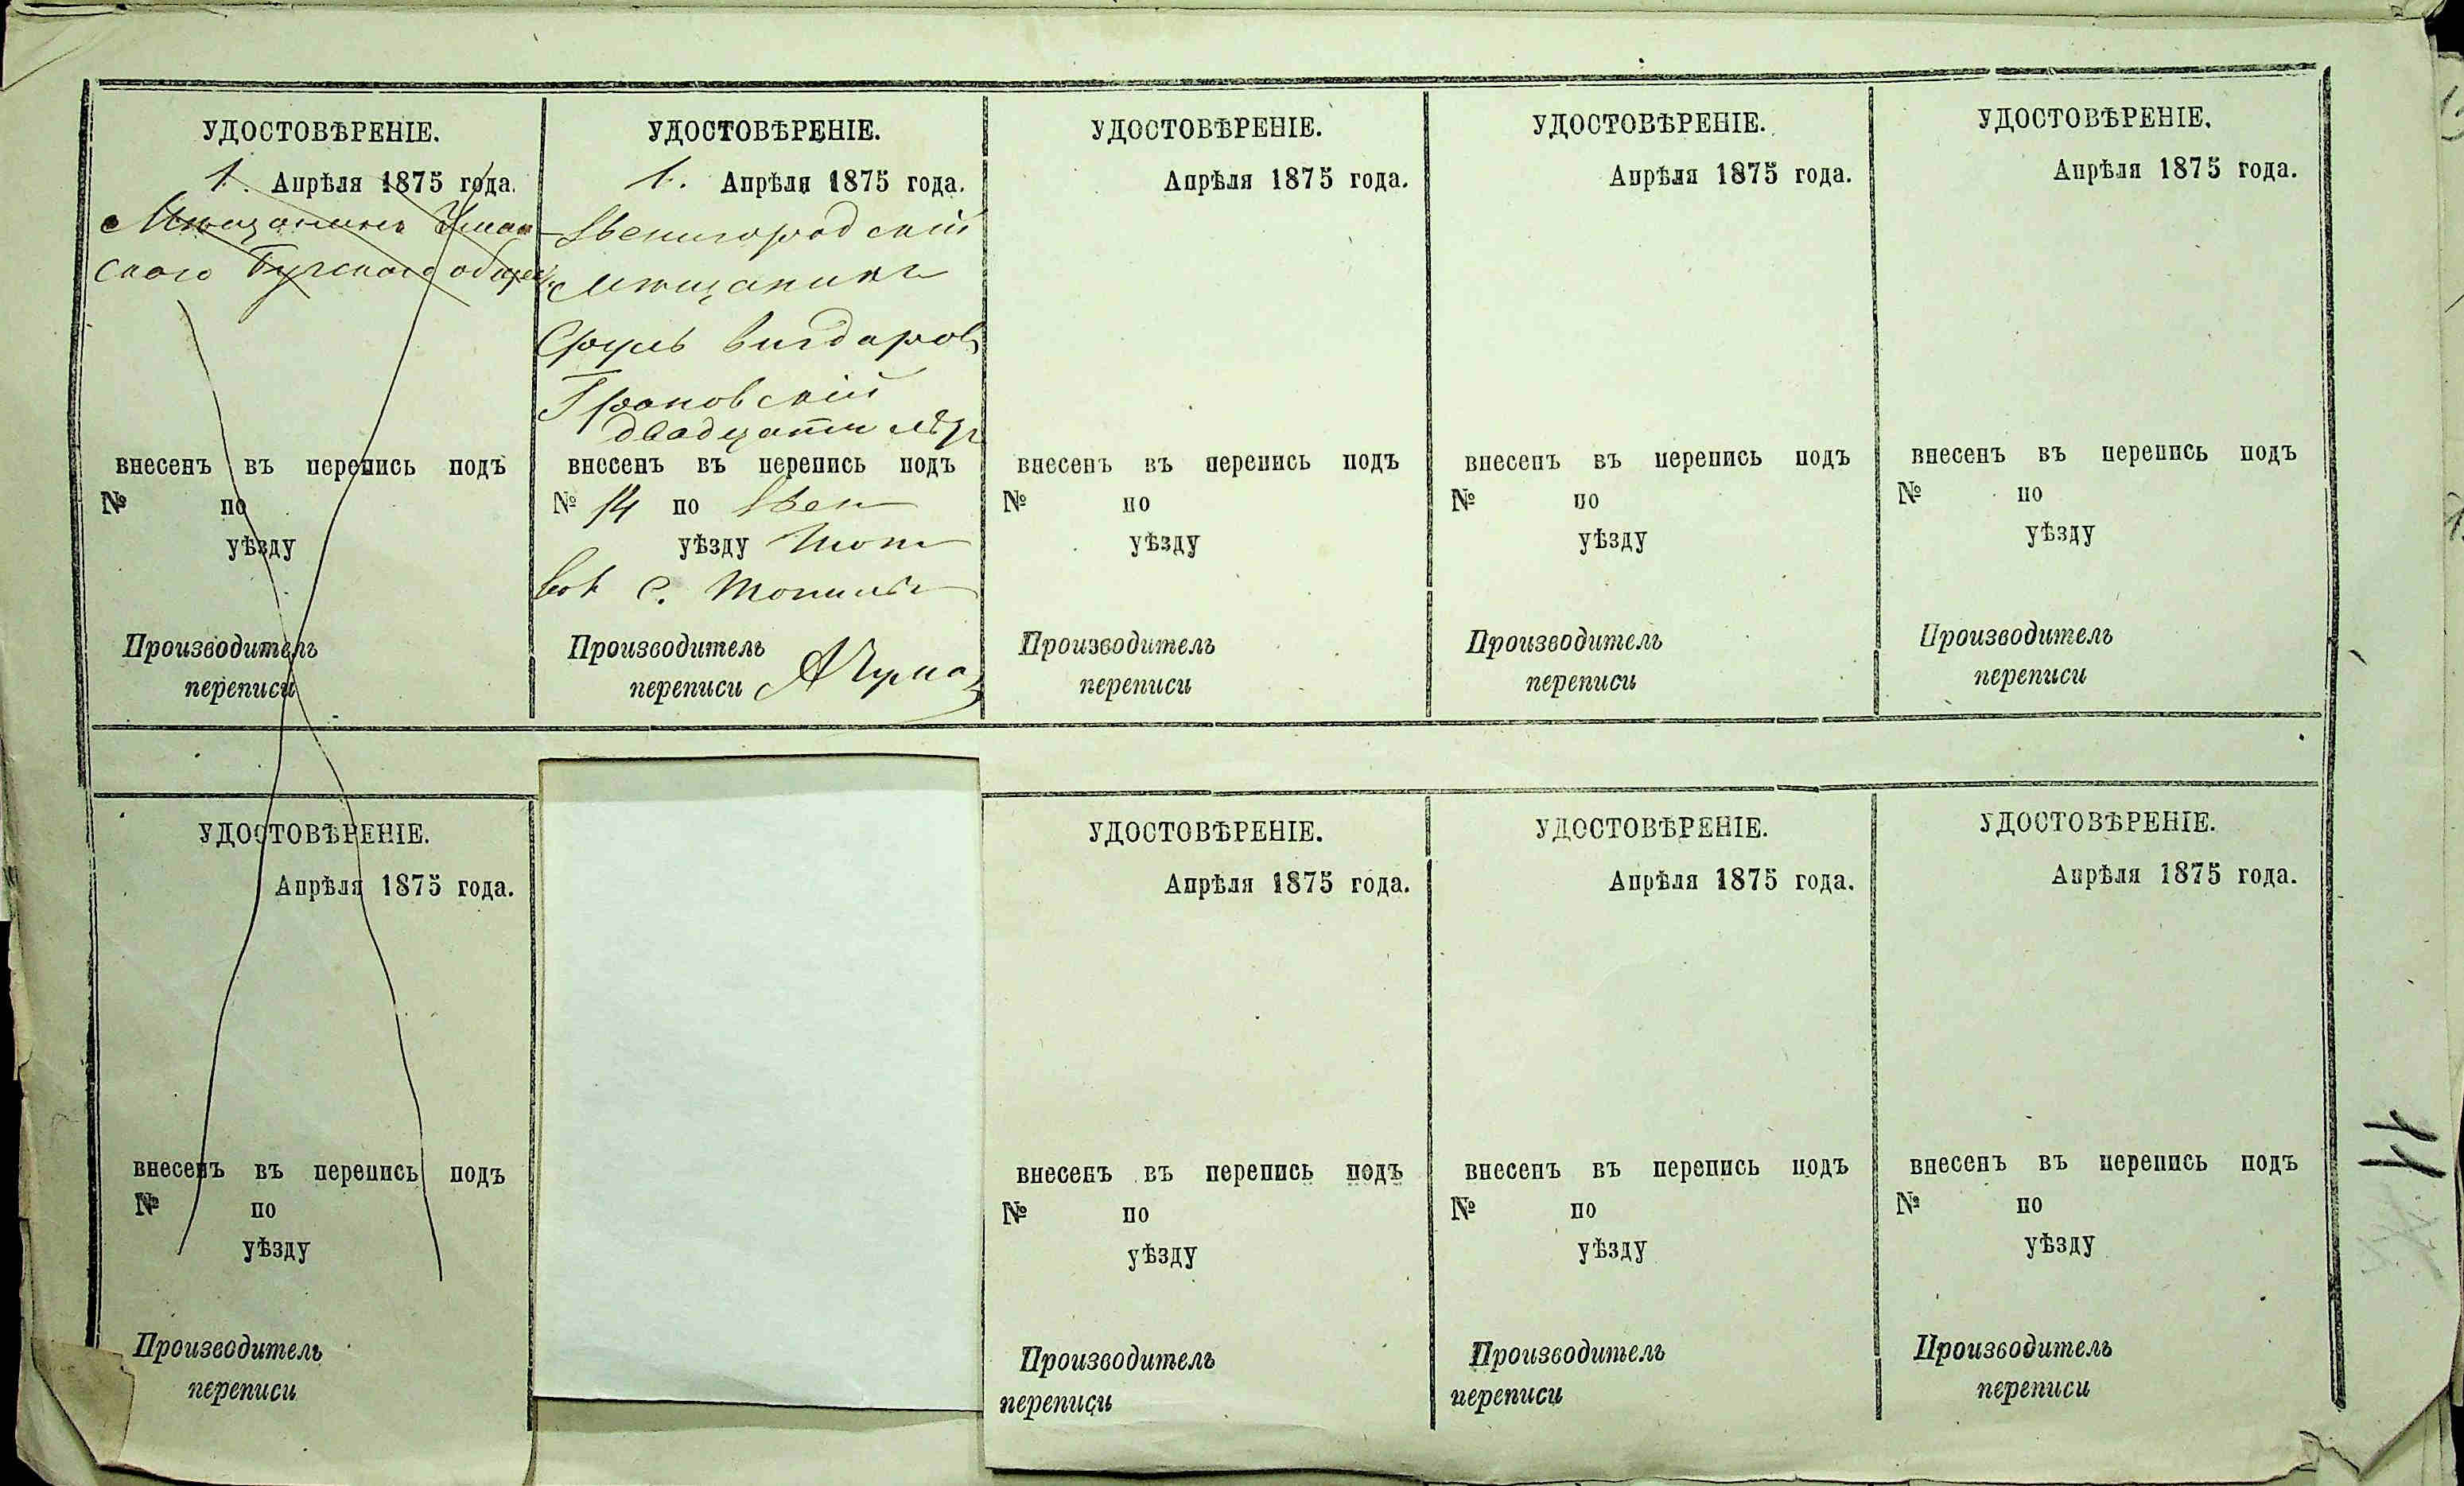 УДОСТОВѢРЕНІЕ.
1. Апрѣля 1875 года.
Мѣщанинъ Уман-
ского Бугского общес
внесенъ въ перепись подъ
№ по
уѣзду
Производитель
переписи
УДОСТОВѢРЕНІЕ.
1. Апрѣля 1875 года.
Звенигородскій
мѣщанинъ
Сруль Вигдоров
Грановскій
двадцати лѣтъ
внесенъ въ перепись подъ
№ 14 по Звен
уѣзду
вол с.
Производитель
переписи
УДОСТОВѢРЕНІЕ.
Апрѣля 1875 года.
внесенъ въ перепись подъ
№ по
уѣзду
Производитель
переписи
УДОСТОВѢРЕНІЕ.
Апрѣля 1875 года.
внесенъ въ перепись подъ
№ по
уѣзду
Производитель
переписи
УДОСТОВѢРЕНІЕ.
Апрѣля 1875 года.
внесенъ въ перепись подъ
№ по
уѣзду
Производитель
переписи
УДОСТОВѢРЕНІЕ.
Апрѣля 1875 года.
внесенъ въ перепись подъ
№ по
уѣзду
Производитель
переписи
УДОСТОВѢРЕНІЕ.
Апрѣля 1875 года.
внесенъ въ перепись подъ
№ по
уѣзду
Производитель
переписи
УДОСТОВѢРЕНІЕ.
Апрѣля 1875 года.
внесенъ въ перепись подъ
№ по
уѣзду
Производитель
переписи
УДОСТОВѢРЕНІЕ.
Апрѣля 1875 года.
внесенъ въ перепись подъ
№ по
уѣзду
Производитель
переписи
11